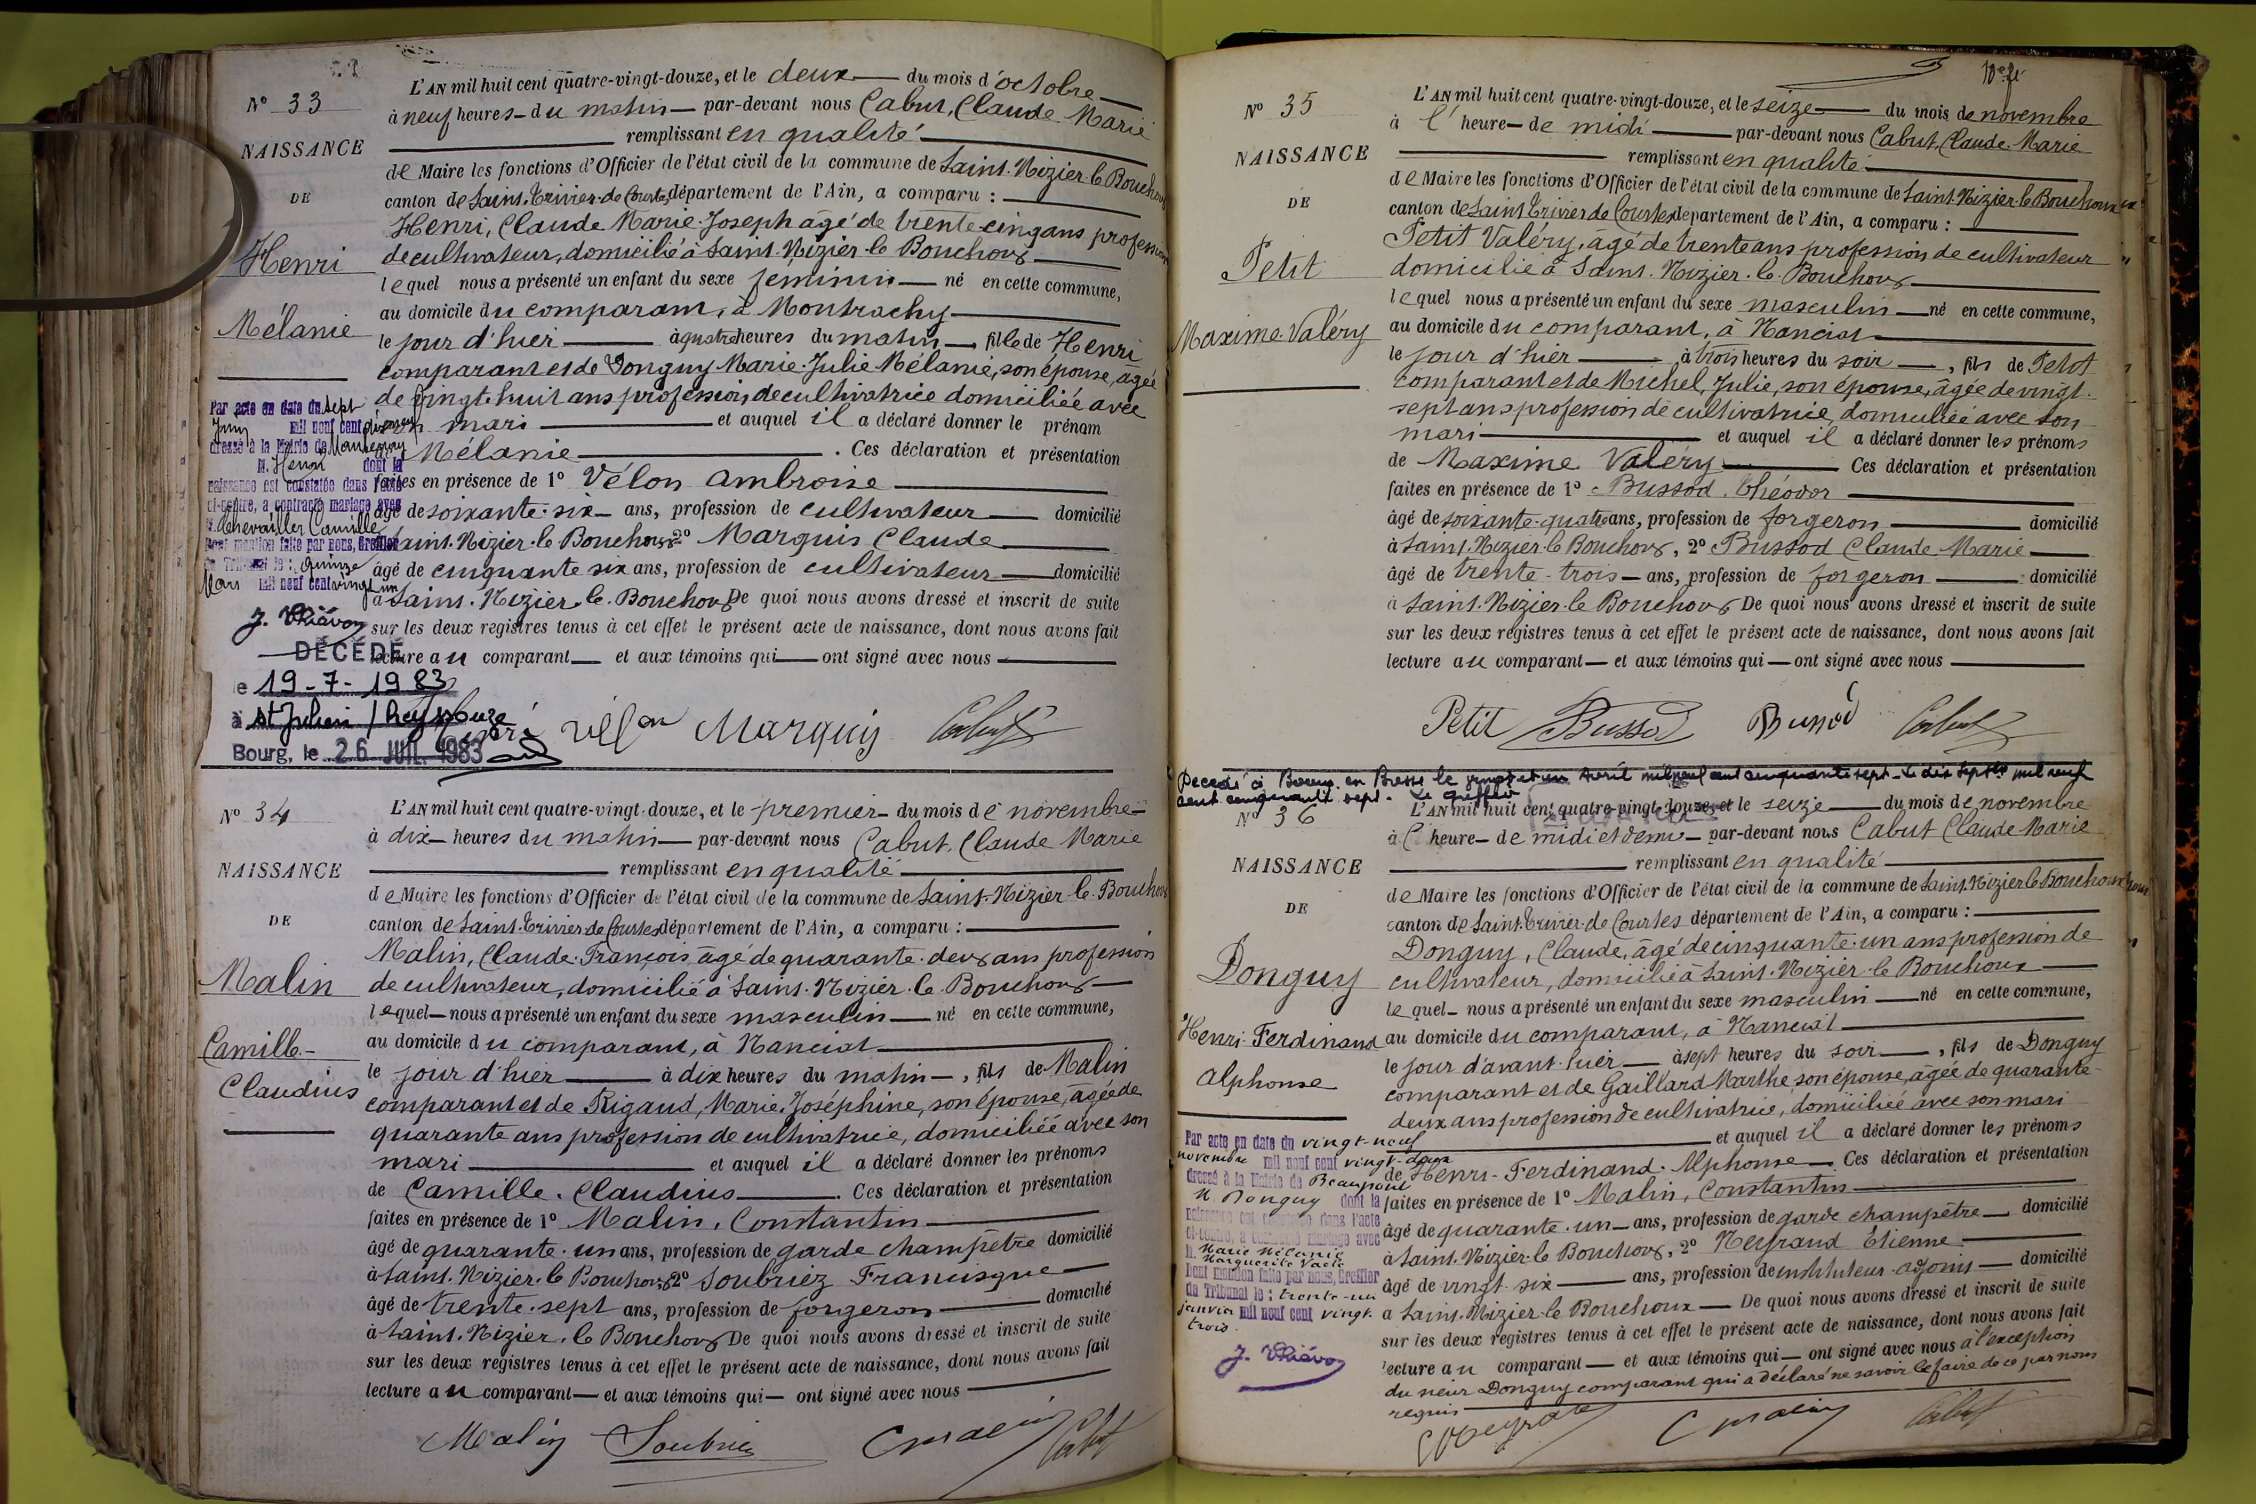 N° 33
NAISSANCE
DE
Henri
Mélanie
L'AN mil huit cent quatre-vingt-douze, et le deux du mois d'octobre
à neuf heures du matin par-devant nous Cabut, Claude Marie
remplissant en qualité
de Maire les fonctions d'Officier de l'état civil de la commune de Saint-Nizier-le-Bouchoux
canton de Saint-Trivier-de-Courtes département de l'Ain, a comparu :
Henri, Claude Marie Joseph âgé de trente cinq ans profession
de cultivateur, domicilié à Saint-Nizier-le-Bouchoux
lequel nous a présenté un enfant du sexe féminin né en cette commune,
au domicile du comparant, à Montrachy
le jour d'hier à quatre heures du matin, fille de Henri
comparant et de Donguy Marie-Julie Mélanie, son épouse, âgée
de vingt-huit ans profession de cultivatrice domiciliée avec
son mari et auquel il a déclaré donner le prénom
de Mélanie. Ces déclaration et présentation
faites en présence de 1° Vélon Ambroise
âgé de soixante-six ans, profession de cultivateur domicilié
à Saint-Nizier-le-Bouchoux, 2° Marquis Claude
âgé de cinquante six ans, profession de cultivateur domicilié
à Saint-Nizier-le-Bouchoux De quoi nous avons dressé et inscrit de suite
sur les deux registres tenus à cet effet le présent acte de naissance, dont nous avons fait
lecture au comparant et aux témoins qui ont signé avec nous
Par acte en date du sept
Juin mil neuf cent dix neuf
dressé à la Mairie de Mantenay
N. Henri dont la
naissance est constatée dans l'acte
ci-contre, a contracté mariage avec
Chevailler Camille
Dont mention faite par nous, Greffier
du Tribunal le : quinze
Mars mil neuf cent vingt un
DÉCÉDÉ
le 19-7-1983
à St Julien / Reyssouze
Bourg, le 26 JUIL. 1983
Henri Vélon Marquis Cabut
N° 34
NAISSANCE
DE
Malin
Camille-
Claudius
L'AN mil huit cent quatre-vingt-douze, et le premier du mois de novembre
à dix heures du matin par-devant nous Cabut, Claude Marie
remplissant en qualité
de Maire les fonctions d'Officier de l'état civil de la commune de Saint-Nizier-le-Bouchoux
canton de Saint-Trivier-de-Courtes département de l'Ain, a comparu :
Malin, Claude-François âgé de quarante-deux ans profession
de cultivateur, domicilié à Saint-Nizier-le-Bouchoux
lequel nous a présenté un enfant du sexe masculin né en cette commune,
au domicile du comparant, à Nanciat
le jour d'hier à dix heures du matin, fils de Malin
comparant et de Rigaud, Marie-Joséphine, son épouse, âgée de
quarante ans profession de cultivatrice, domiciliée avec son
mari et auquel il a déclaré donner les prénoms
de Camille-Claudius. Ces déclaration et présentation
faites en présence de 1° Malin, Constantin
âgé de quarante-un ans, profession de garde champêtre domicilié
à Saint-Nizier-le-Bouchoux, 2° Soubriez Francisque
âgé de trente-sept ans, profession de forgeron domicilié
à Saint-Nizier-le-Bouchoux De quoi nous avons dressé et inscrit de suite
sur les deux registres tenus à cet effet le présent acte de naissance, dont nous avons fait
lecture au comparant et aux témoins qui ont signé avec nous
Malin Soubriez C Malin Cabut
N° 35
NAISSANCE
DE
Petit
Maxime-Valéry
L'AN mil huit cent quatre-vingt-douze, et le seize du mois de novembre
à l'heure de midi par-devant nous Cabut, Claude Marie
remplissant en qualité
de Maire les fonctions d'Officier de l'état civil de la commune de Saint-Nizier-le-Bouchoux
canton de Saint-Trivier-de-Courtes département de l'Ain, a comparu :
Petit Valéry, âgé de trente ans profession de cultivateur
domicilié à Saint-Nizier-le-Bouchoux
lequel nous a présenté un enfant du sexe masculin né en cette commune,
au domicile du comparant, à Nanciat
le jour d'hier, à trois heures du soir, fils de Petit
comparant et de Michel, Julie, son épouse, âgée de vingt-
sept ans profession de cultivatrice, domiciliée avec son
mari et auquel il a déclaré donner les prénoms
de Maxime Valéry Ces déclaration et présentation
faites en présence de 1° Bussod, Théodor
âgé de soixante-quatre ans, profession de forgeron domicilié
à Saint-Nizier-le-Bouchoux, 2° Bussod Claude Marie
âgé de trente-trois ans, profession de forgeron domicilié
à Saint-Nizier-le-Bouchoux De quoi nous avons dressé et inscrit de suite
sur les deux registres tenus à cet effet le présent acte de naissance, dont nous avons fait
lecture au comparant et aux témoins qui ont signé avec nous
Petit Bussod Bussod Cabut
Décédé à Bourg en Bresse le vingt et un Avril mil neuf cent cinquante sept - Le dix Septbre mil neuf
cent cinquante sept. Le greffier
N° 36
NAISSANCE
DE
Donguy
Henri-Ferdinand
Alphonse
L'AN mil huit cent quatre-vingt-douze, et le seize du mois de novembre
à l'heure de midi et demi par-devant nous Cabut Claude Marie
remplissant en qualité
de Maire les fonctions d'Officier de l'état civil de la commune de Saint-Nizier-le-Bouchoux
canton de Saint-Trivier-de-Courtes département de l'Ain, a comparu :
Donguy, Claude, âgé de cinquante-un ans profession de
cultivateur, domicilié à Saint-Nizier-le-Bouchoux
lequel nous a présenté un enfant du sexe masculin né en cette commune,
au domicile du comparant, à Nanciat
le jour d'avant-hier à sept heures du soir, fils de Donguy
comparant et de Gaillard Marthe son épouse, âgée de quarante-
deux ans profession de cultivatrice, domiciliée avec son mari
et auquel il a déclaré donner les prénoms
de Henri-Ferdinand-Alphonse Ces déclaration et présentation
faites en présence de 1° Malin, Constantin
âgé de quarante-un ans, profession de garde champêtre domicilié
à Saint-Nizier-le-Bouchoux, 2° Neyrand Etienne
âgé de vingt-six ans, profession de instituteur-adjoint domicilié
à Saint-Nizier-le-Bouchoux De quoi nous avons dressé et inscrit de suite
sur les deux registres tenus à cet effet le présent acte de naissance, dont nous avons fait
lecture au comparant et aux témoins qui ont signé avec nous à l'exception
du sieur Donguy comparant qui a déclaré ne savoir le faire de ce par nous
requis
Par acte en date du vingt-neuf
novembre mil neuf cent vingt-deux
dressé à la Mairie de Beaupont
N. Donguy dont la
naissance est constatée dans l'acte
ci-contre, a contracté mariage avec
N. Marie Mélanie
Marguerite
Dont mention faite par nous, Greffier
du Tribunal le : trente-un
janvier mil neuf cent vingt-
trois.
Neyrand C Malin Cabut